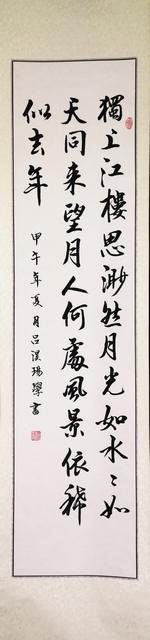 獨上江樓思渺然月光如水々如
天同来望月人何處風景依稀
似去年
甲午年夏月吕漢瑒學書